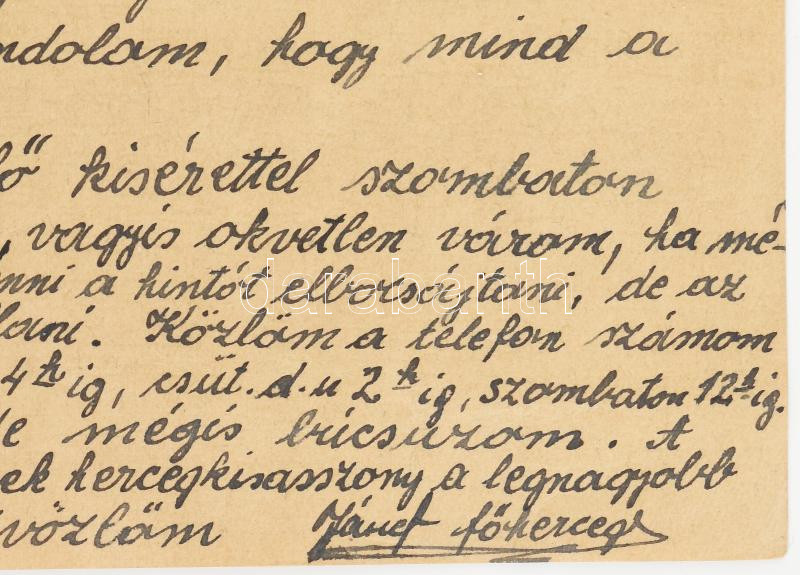 ndolom, hogy mind a
lő kisérettel szombaton
, vagyis okvetlen várom, ha mé-
nni a hintót elbocsájtani, de az
lani. Közlöm a telefon számom
4 h ig, csüt. d. u 2 h ig, szombaton 12 h ig.
le mégis bricsúzom. A
ek hercegkisasszony a legnagyobb
vözlöm József főherceg
darabanth